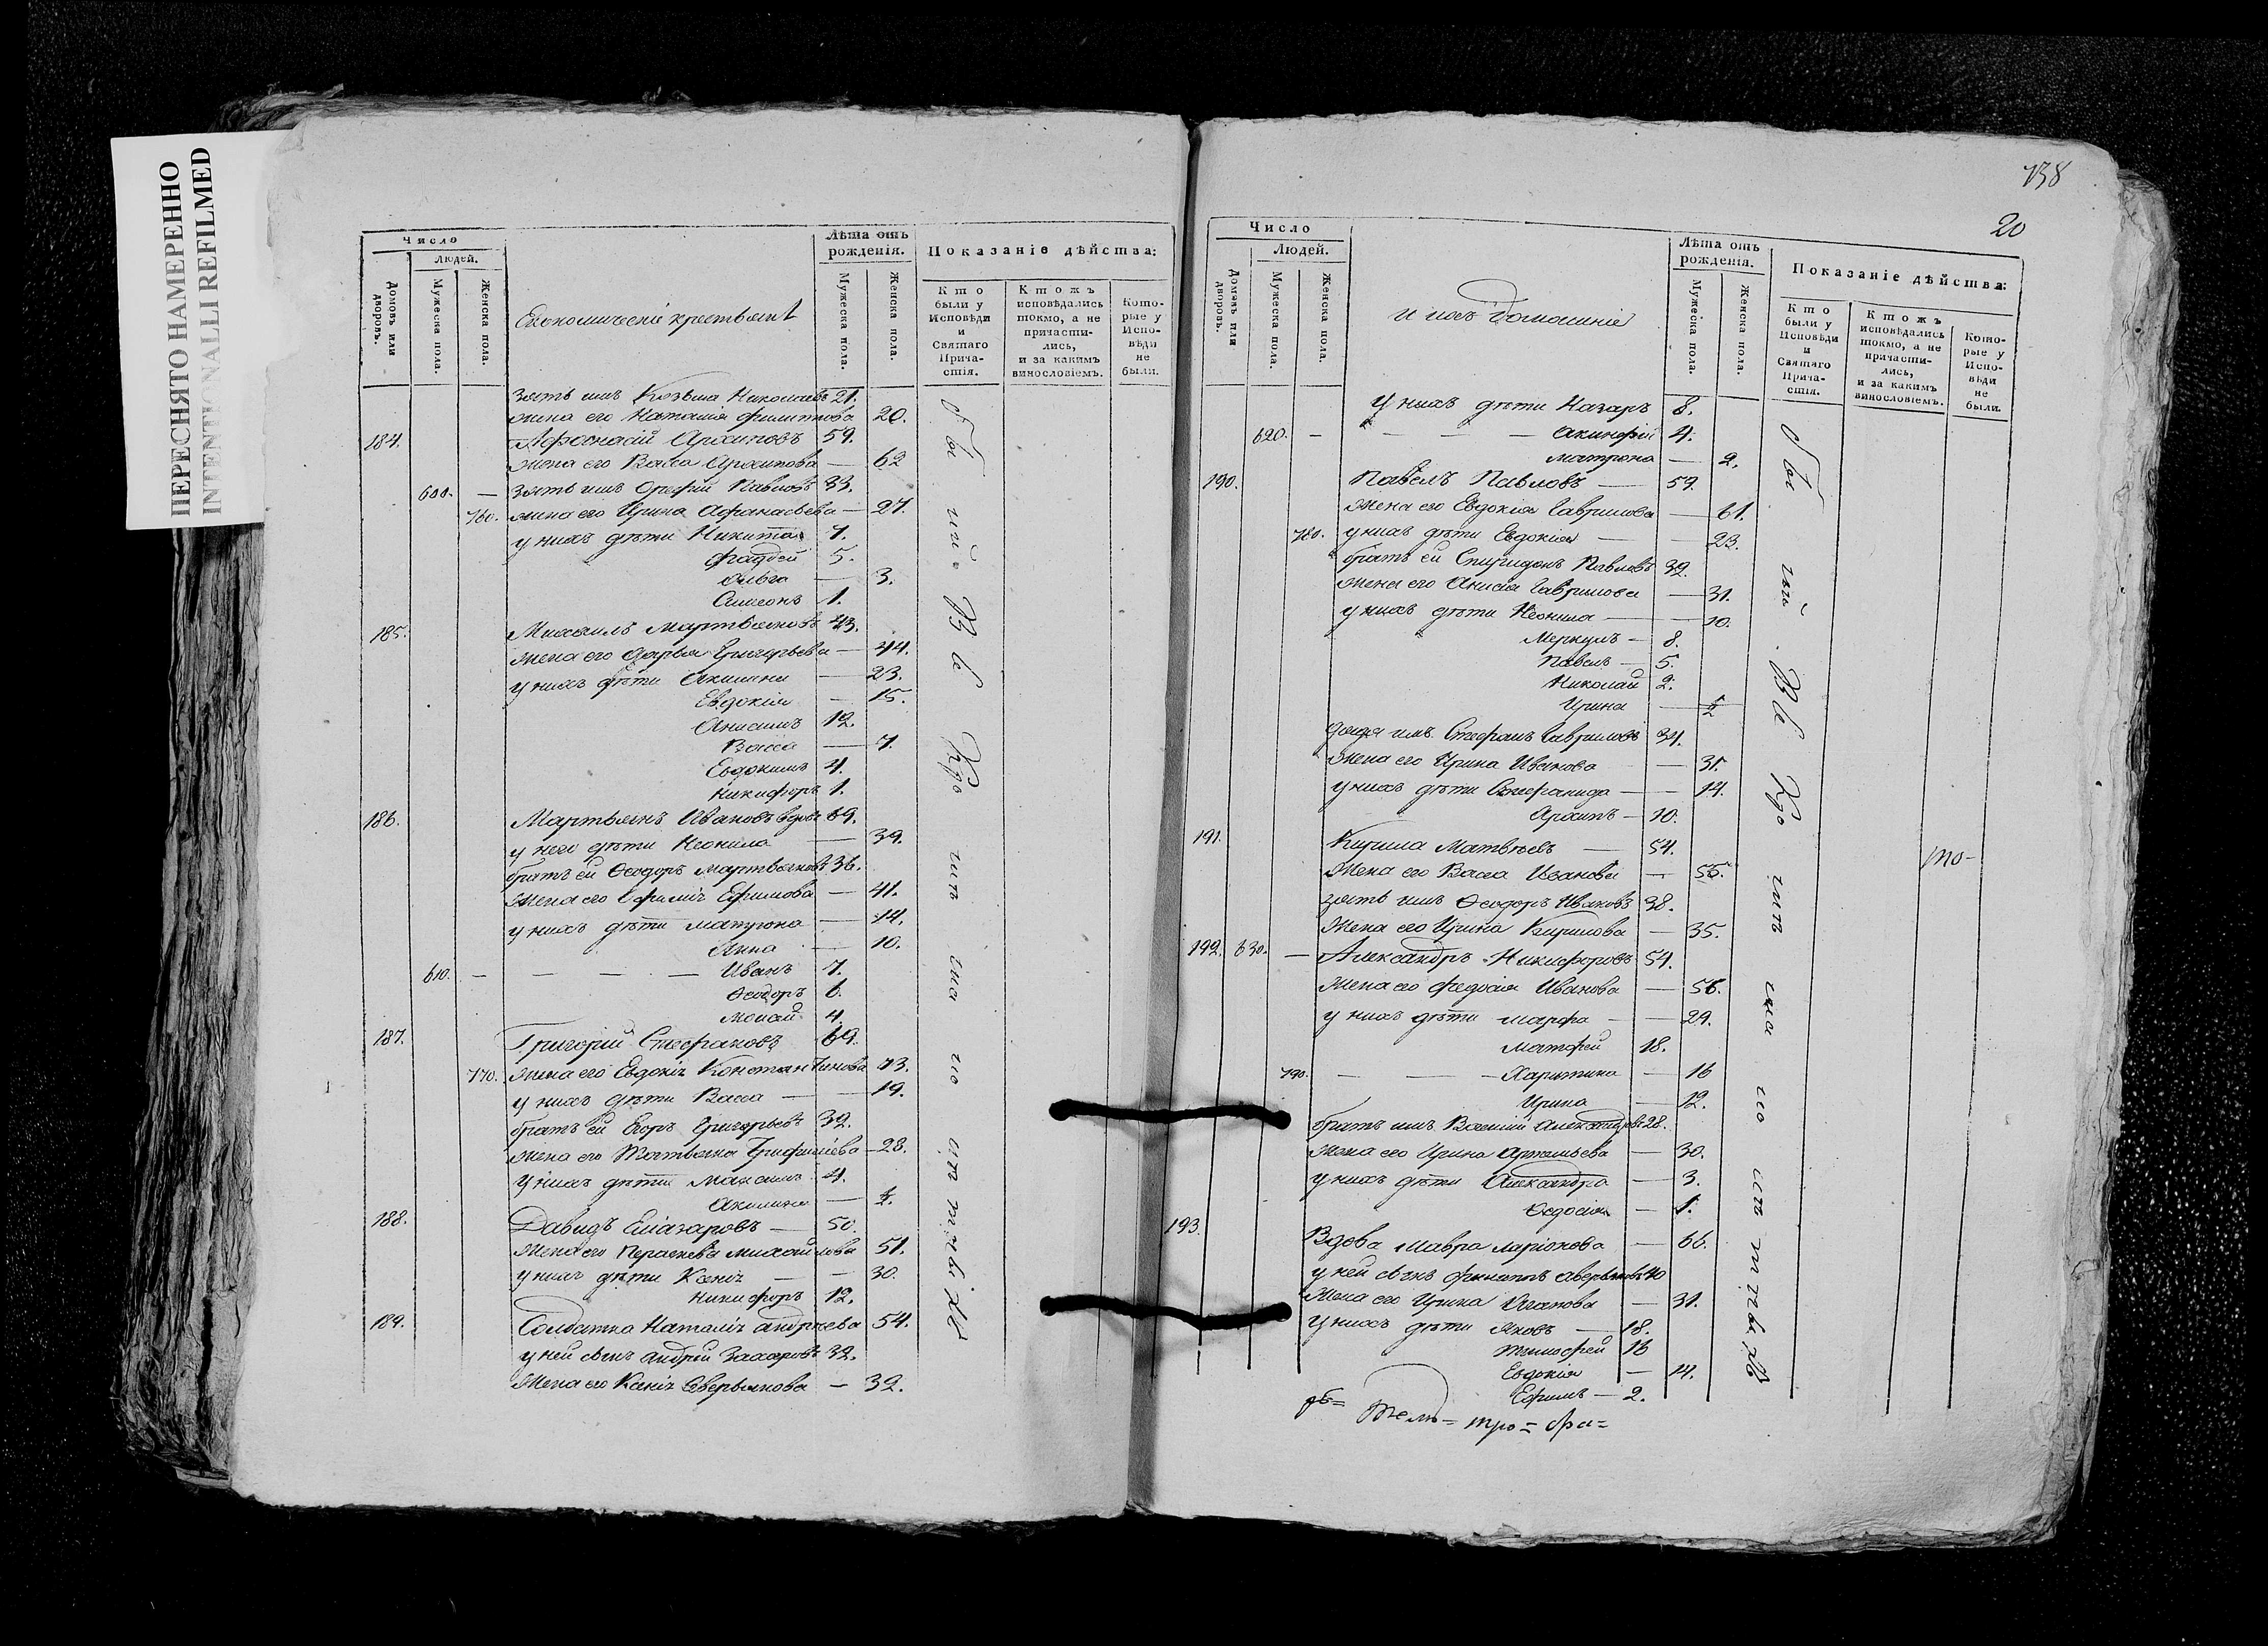 ПЕРЕСНЯТО НАМЕРЕННО
INTENTIONALLI REFILMED
Число
Людей.
Домовъ или дворовъ.
Мужеска пола.
Женска пола.
Економическіе крестьяне
Лѣта отъ рожденія.
Мужеска пола.
Женска пола.
Показаніе дѣйства:
Кто были у Исповѣди и Святаго Причастія.
Ктожъ исповѣдались токмо, а не причастились, и за какимъ винословіемъ.
Которые у Исповѣди не были.
зять имъ Козьма Николаевъ 21.
жена его Наталия Филиппова 20.
184. Афонасій Архиповъ 59.
жена его Васса Архипова — 62
600. — зять имъ Орефий Павловъ 33.
760. жена его Ирина Афанасьева — 27.
у нихъ дѣти Никита 7.
Фаддей 5.
Ольга — 3.
Симеонъ 1.
185. Михаилъ Мартьяновъ 43.
жена его Дарья Григорьева — 44.
у нихъ дѣти Акилина — 23.
Евдокія — 15.
Анисимъ 12.
Васса — 7.
Евдокимъ 4.
Никифоръ 1.
186. Мартьянъ Ивановъ вдовъ 69.
у него дѣти Неонила — 39.
братъ ей Ѳеодоръ Мартьяновъ 36.
жена его Ефимія Ефимова — 41.
у нихъ дѣти Матрона — 14.
Анна — 10.
610. — — — — Иванъ 7.
Ѳеодоръ 6.
Мокай 4.
187. Григорій Стефановъ 69.
770. жена его Евдокія Константинова 73.
у нихъ дѣти Васса — — 19.
братъ ей Егоръ Григорьевъ 32.
жена его Татьяна Трифилиева — 28.
у нихъ дѣти Максимъ 4.
Акилина — ½.
188. Давидъ Елизаровъ — 50.
жена его Параскева Михайлова 51.
у нихъ дѣти Ксенія — — 30.
Никифоръ 12.
189. Солдатка Наталія Андреева 54.
у ней сынъ Андрей Захаровъ 32.
жена его Ксенія Аверьянова — 32.
138
20
Число
Людей.
Домовъ или дворовъ.
Мужеска пола.
Женска пола.
и ихъ домашніе
Лѣта отъ рожденія.
Мужеска пола.
Женска пола.
Показаніе дѣйства:
Кто были у Исповѣди и Святаго Причастія.
Ктожъ исповѣдались токмо, а не причастились, и за какимъ винословіемъ.
Которые у Исповѣди не были.
у нихъ дѣти Назаръ 8.
620. — — — — Акинфій 4.
Матрона — 2.
190. Павелъ Павловъ — 59.
жена его Евдокія Гаврилова — 61.
780. у нихъ дѣти Евдокія — — 23.
братъ ей Спиридонъ Павловъ 32.
жена его Анисія Гаврилова — 31.
у нихъ дѣти Неонила — — 10.
Меркулъ — 8.
Павелъ — 5.
Николай 2.
Ирина — ½
дядя имъ Стефанъ Гавриловъ 34.
жена его Ирина Иванова — 31.
у нихъ дѣти Стефанида — — 14.
Архипъ — 10.
191. Кирила Матвѣевъ — 54.
жена его Васса Иванова — 55.
зять имъ Ѳеодоръ Ивановъ 38.
жена его Ирина Кирилова — 35.
192. 630. — Александръ Никифоровъ 54.
жена его Федосія Иванова — 56.
у нихъ дѣти Марфа — — 29.
Матфей 18.
790. — — — Харитина — 16
Ирина — 12.
братъ имъ Василій Александровъ 28.
жена его Ирина Артемьева — 30.
у нихъ дѣти Александра — 3.
Ѳедосія — 1.
193. Вдова Мавра Ларіонова — 66.
у ней сынъ Филиппъ Аверьяновъ 40
жена его Ирина Иванова — 31.
у нихъ дѣти Яковъ — 18.
Тимофей 16
Евдокія — 14.
Ефимъ — 2.